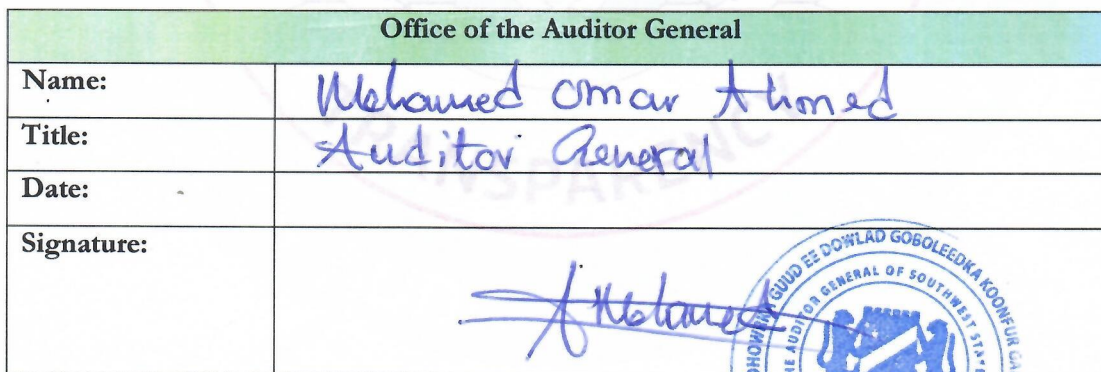 Office of the Auditor General
Name: Mohamed Omar Ahmed
Title: Auditor General
Date:
Signature: Mohamed
TRANSPARENCY
GUUD EE DOWLAD GOBOLEEDKA KOONFUR GA
THE AUDITOR GENERAL OF SOUTHWEST STATE